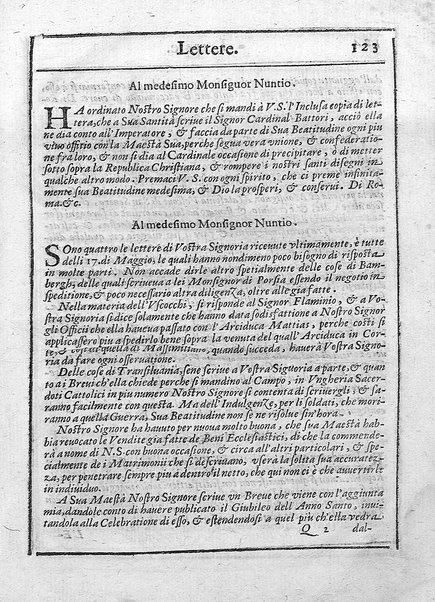 Lettere. 123
Al medesimo Monsignor Nuntio.
HA ordinato Nostro Signore che si mandi à V.S. l'Inclusa copia di let-
tera, che a Sua Santità scriue il Signor Cardinal Battori, acciò ella
ne dia conto all'Imperatore, & faccia da parte di Sua Beatitudine ogni piu
viuo offitio con la Maestà Sua, perche segua vera vnione, & confederatio-
ne fra loro, & non si dia al Cardinale occasione di precipitare, ò di metter
sotto sopra la Republica Christiana, & rompere i nostri santi disegni in
qualche altro modo. Prema ci V.S. con ogni spirito, che ci preme infinita-
mente sua Beatitudine medesima, & Dio la prosperi, & conserui. Di Ro-
ma.&c.
Al medesimo Monsignor Nuntio.
SOno quattro le lettere di Vostra Signoria riceuute vltimamente, è tutte
delli 17. di Maggio, le quali hanno nondimeno poco bisogno di risposta
in molte parti. Non accade dirle altro spetialmente delle cose di Bam-
bergh, delle quali scriueua a lei Monsignor di Porsia essendo il negotio in
speditione, & poco necessario altra diligenza, oltre alle già fatte.
Nella materia dell'Vscocchi, si risponde al Signor Flaminio, & a Vo-
stra Signoria si dice solamente che hanno data sodisfattione a Nostro Signor
gli Officii che ella haueua passato con l'Arciduca Mattias, perche così si
applicassero piu a spedirlo bene sopra la venuta del quall' Arciduca in Cor-
te, & così di quella di Massimiliano, quando succeda, hauerà Vostra Signo-
ria da fare ogni osseruatione.
Delle cose di Transiluania, sene scriue a Vostra Signoria a parte, & quan-
to a i Breui ch'ella chiede perche si mandino al Campo, in Vngheria Sacer-
doti Cattolici in piu numero Nostro Signore si contenta di scriuergli, & sa-
ranno facilmente con questa. Ma dell'Indulgenze, per li soldati, che mori-
ranno a quella Guerra, Sua Beatitudine non sè ne risolue sin'hora.
Nostro Signore ha hauuto per nuoua molto buona, che sua Maestà hab-
bia reuocato le Vendite gia fatte de Beni Ecclesiastici, di che la commende-
rà a nome di N.S. con buona occasione, & circa all'altri particolari, & spe-
cialmente de i Matrimonii che si desiderano, vserà la solita sua accuratez-
za, per penetrare sempre piu à dentro il netto, che qui non ci è che auuertirle
in indiuiduo.
A Sua Maestà Nostro Signore scriue vn Breue che viene con l'aggiunta
mia, dandole conto di hauere publicato il Giubileo dell'Anno Santo, inui-
tandola alla Celebratione di esso, & estendendosi a quel piu ch'ella vedra
Q 2 dal-